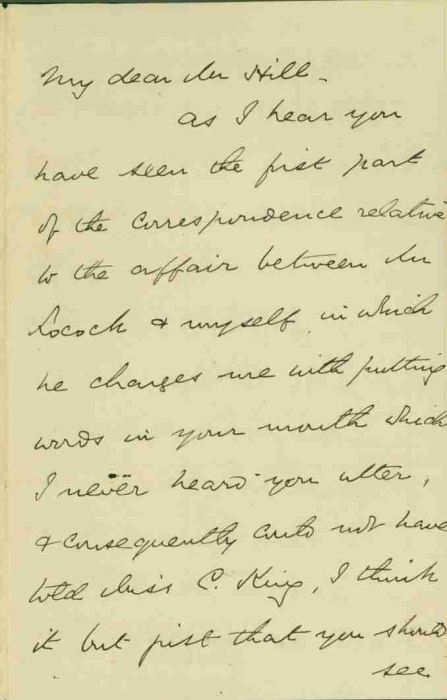 My dear Mr Hill -
as I hear you
have seen the first part
of the correspondence relative
to the affair between Mr
Locock & myself in which
he charges me with putting
words in your mouth which
I never heard you utter,
& consequently could not have
told Miss C. King, I think
it but just that you should
see